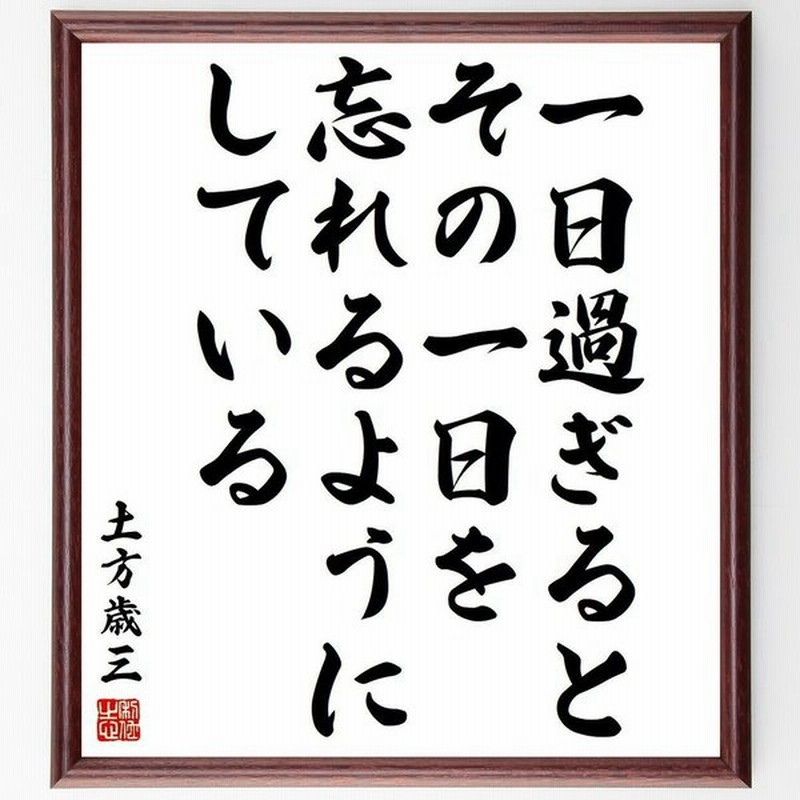 一日過ぎると
その一日を
忘れるように
している
土方歳三